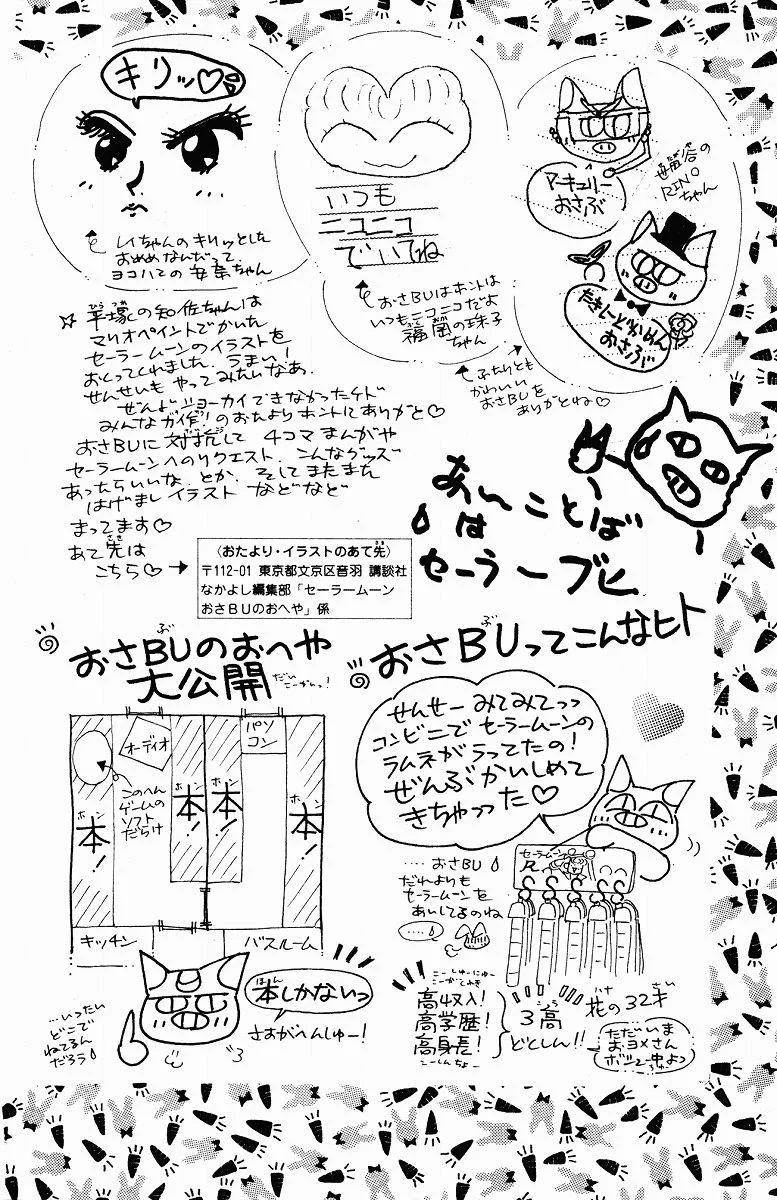 キリッ♡
レイちゃんのキリッとした
おめめなんだって
ヨコハマの安菜ちゃん
いつも
ニコニコ
でいてね
おさBUはホントは
いつもニコニコだよ
福岡の珠子
ちゃん
マーキュリー
おさぶ
世田谷の
RINO
ちゃん
たきしーどかめん
おさぶ
ふたりとも
かわいい
おさBUを
ありがとね♡
☆平塚の知佐ちゃんは
マリオペイントでかいた
セーラームーンのイラストを
おくってくれました。うまい!
せんせいもやってみたいなあ。
ぜんぶショーカイできなかったケド
みんなガイ作!のおたよりホントにありがと♡
おさBUに対抗して 4コマまんがや
セーラームーンへのリクエスト、こんなグッズ
あったらいいな、とか、そしてまたまた
はげましイラストなどなど
まってます♡
あて先は
こちら♡→
〈おたより・イラストのあて先〉
〒112-01 東京都文京区音羽 講談社
なかよし編集部「セーラームーン
おさBUのおへや」係
あいことば
は
セーラーブヒ
おさBUのおへや
大公開
だいこーかいっ!
オーディオ
パソ
コン
このへん
ゲームの
ソフト
だらけ
本!
本!
本!
本!
キッチン
バスルーム
本しかないっ
さすがへんしゅー!
…いったい
どこで
ねてるん
だろう
おさBUってこんなヒト
せんせー みてみてっっ
コンビニで セーラームーンの
ラムネがうってたの!
ぜんぶかいしめて
きちゃった♡
セーラームーン
R
……おさBU
だれよりも
セーラームーンを
あいしてるのね
こーしゅーにゅー
こーがくれき
高収入!
高学歴!
高身長!
こーしんちょー
3高
どくしん!!
花の32才
ただいま
およメさん
ボシュー中よっ